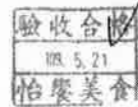 驗收合格
109. 5. 21
怡饗美食